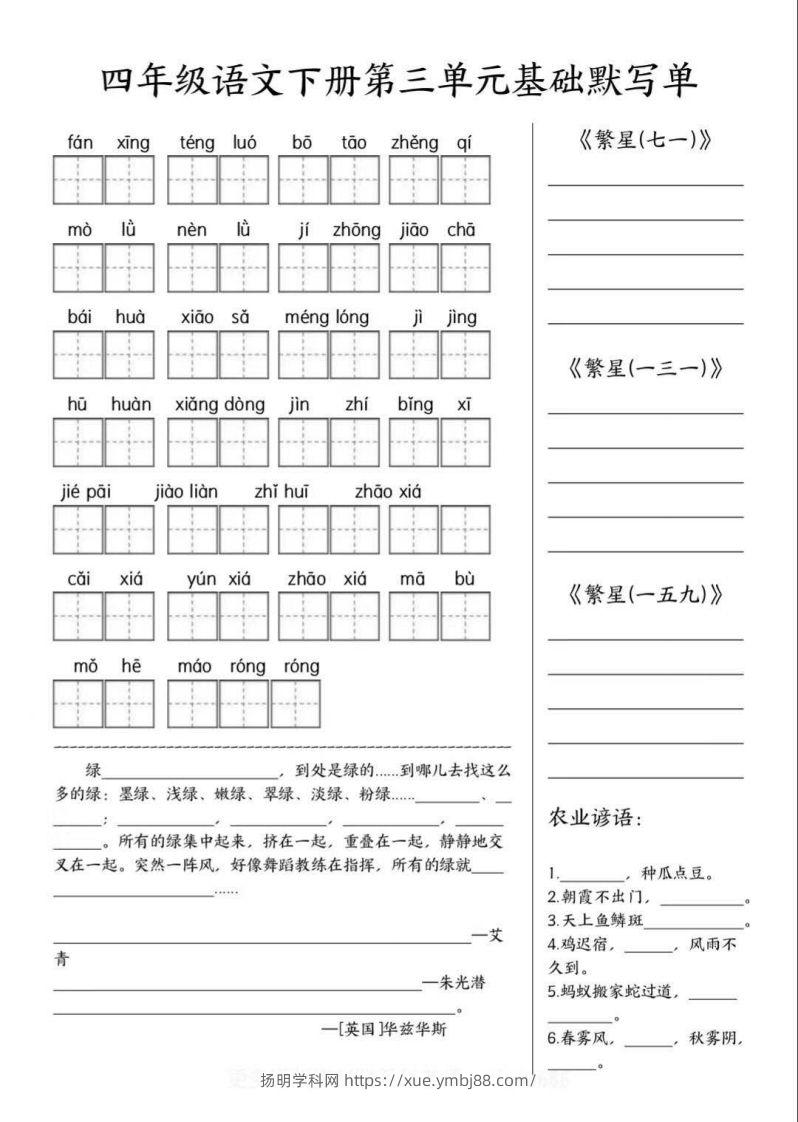 四年级语文下册第三单元基础默写单
fán xīng téng luó bō tāo zhěng qí
mò lǜ nèn lǜ jí zhōng jiāo chā
bái huà xiāo sǎ méng lóng jì jìng
hū huàn xiǎng dòng jìn zhí bǐng xī
jié pāi jiào liàn zhǐ huī zhāo xiá
cǎi xiá yún xiá zhāo xiá mā bù
mǒ hē máo róng róng
绿____________________，到处是绿的……到哪儿去找这么
多的绿：墨绿、浅绿、嫩绿、翠绿、淡绿、粉绿……________、__
______；__________，__________，__________，______
______。所有的绿集中起来，挤在一起，重叠在一起，静静地交
叉在一起。突然一阵风，好像舞蹈教练在指挥，所有的绿就____
____________________……
____________________—艾
青
____________________—朱光潜
____________________。
—[英国]华兹华斯
《繁星(七一)》
《繁星(一三一)》
《繁星(一五九)》
农业谚语：
1.________，种瓜点豆。
2.朝霞不出门，__________。
3.天上鱼鳞斑____________。
4.鸡迟宿，______，风雨不
久到。
5.蚂蚁搬家蛇过道，______
________。
6.春雾风，______，秋雾阴，
______。
扬明学科网 https://xue.ymbj88.com/